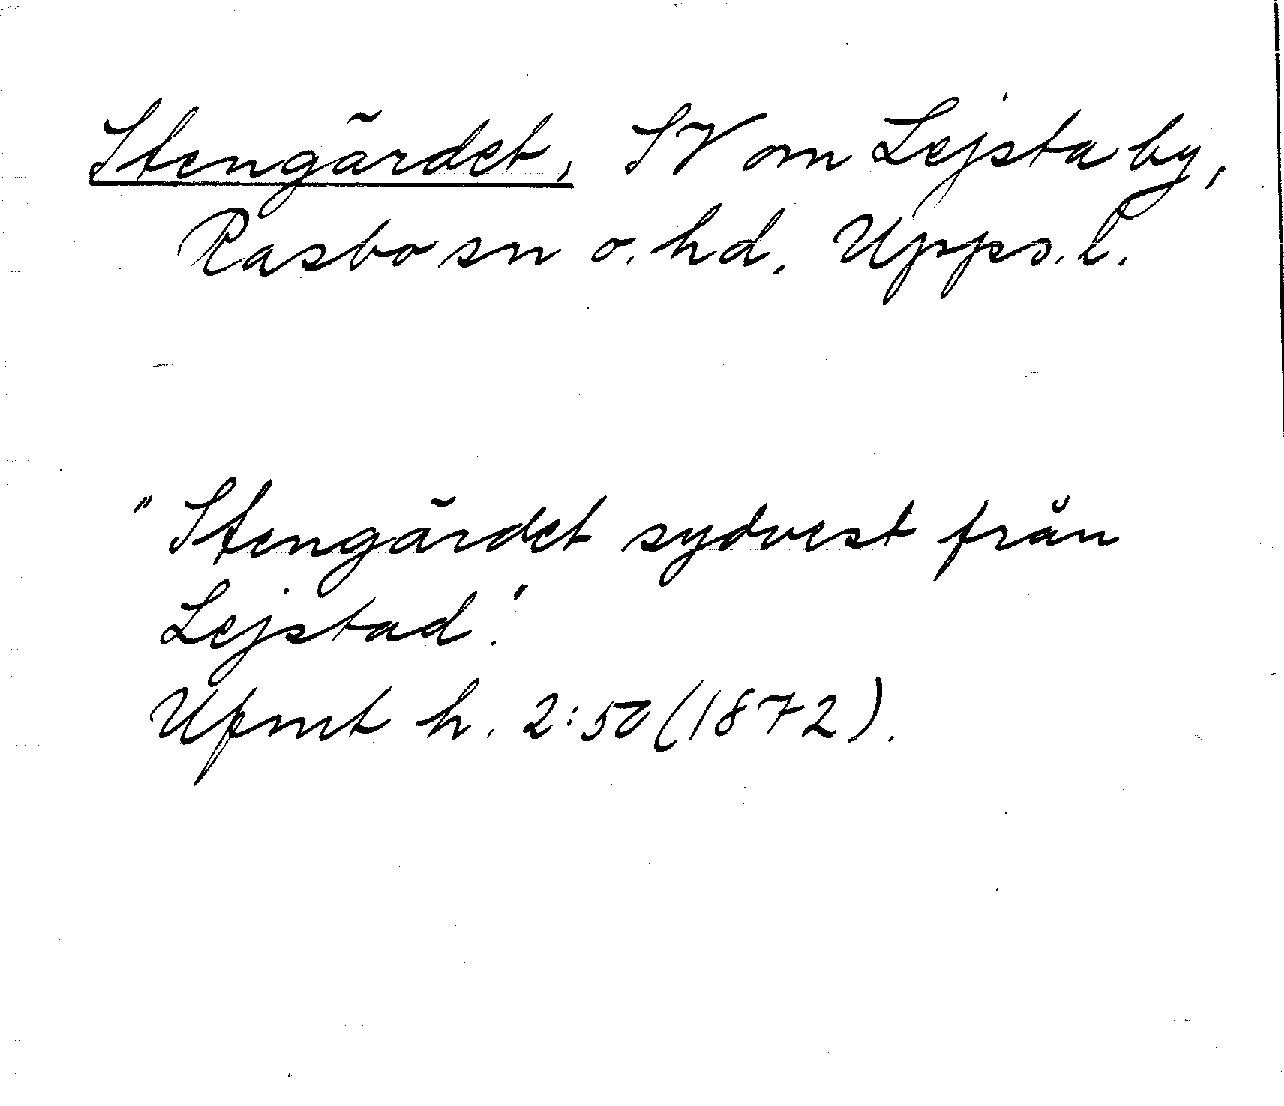 Stengärdet, SV om Lejsta by,
Rasbo sn o. hd. Upps. l.
"Stengärdet sydvest från
Lejstad".
Ufmt h. 2:50 (1872).